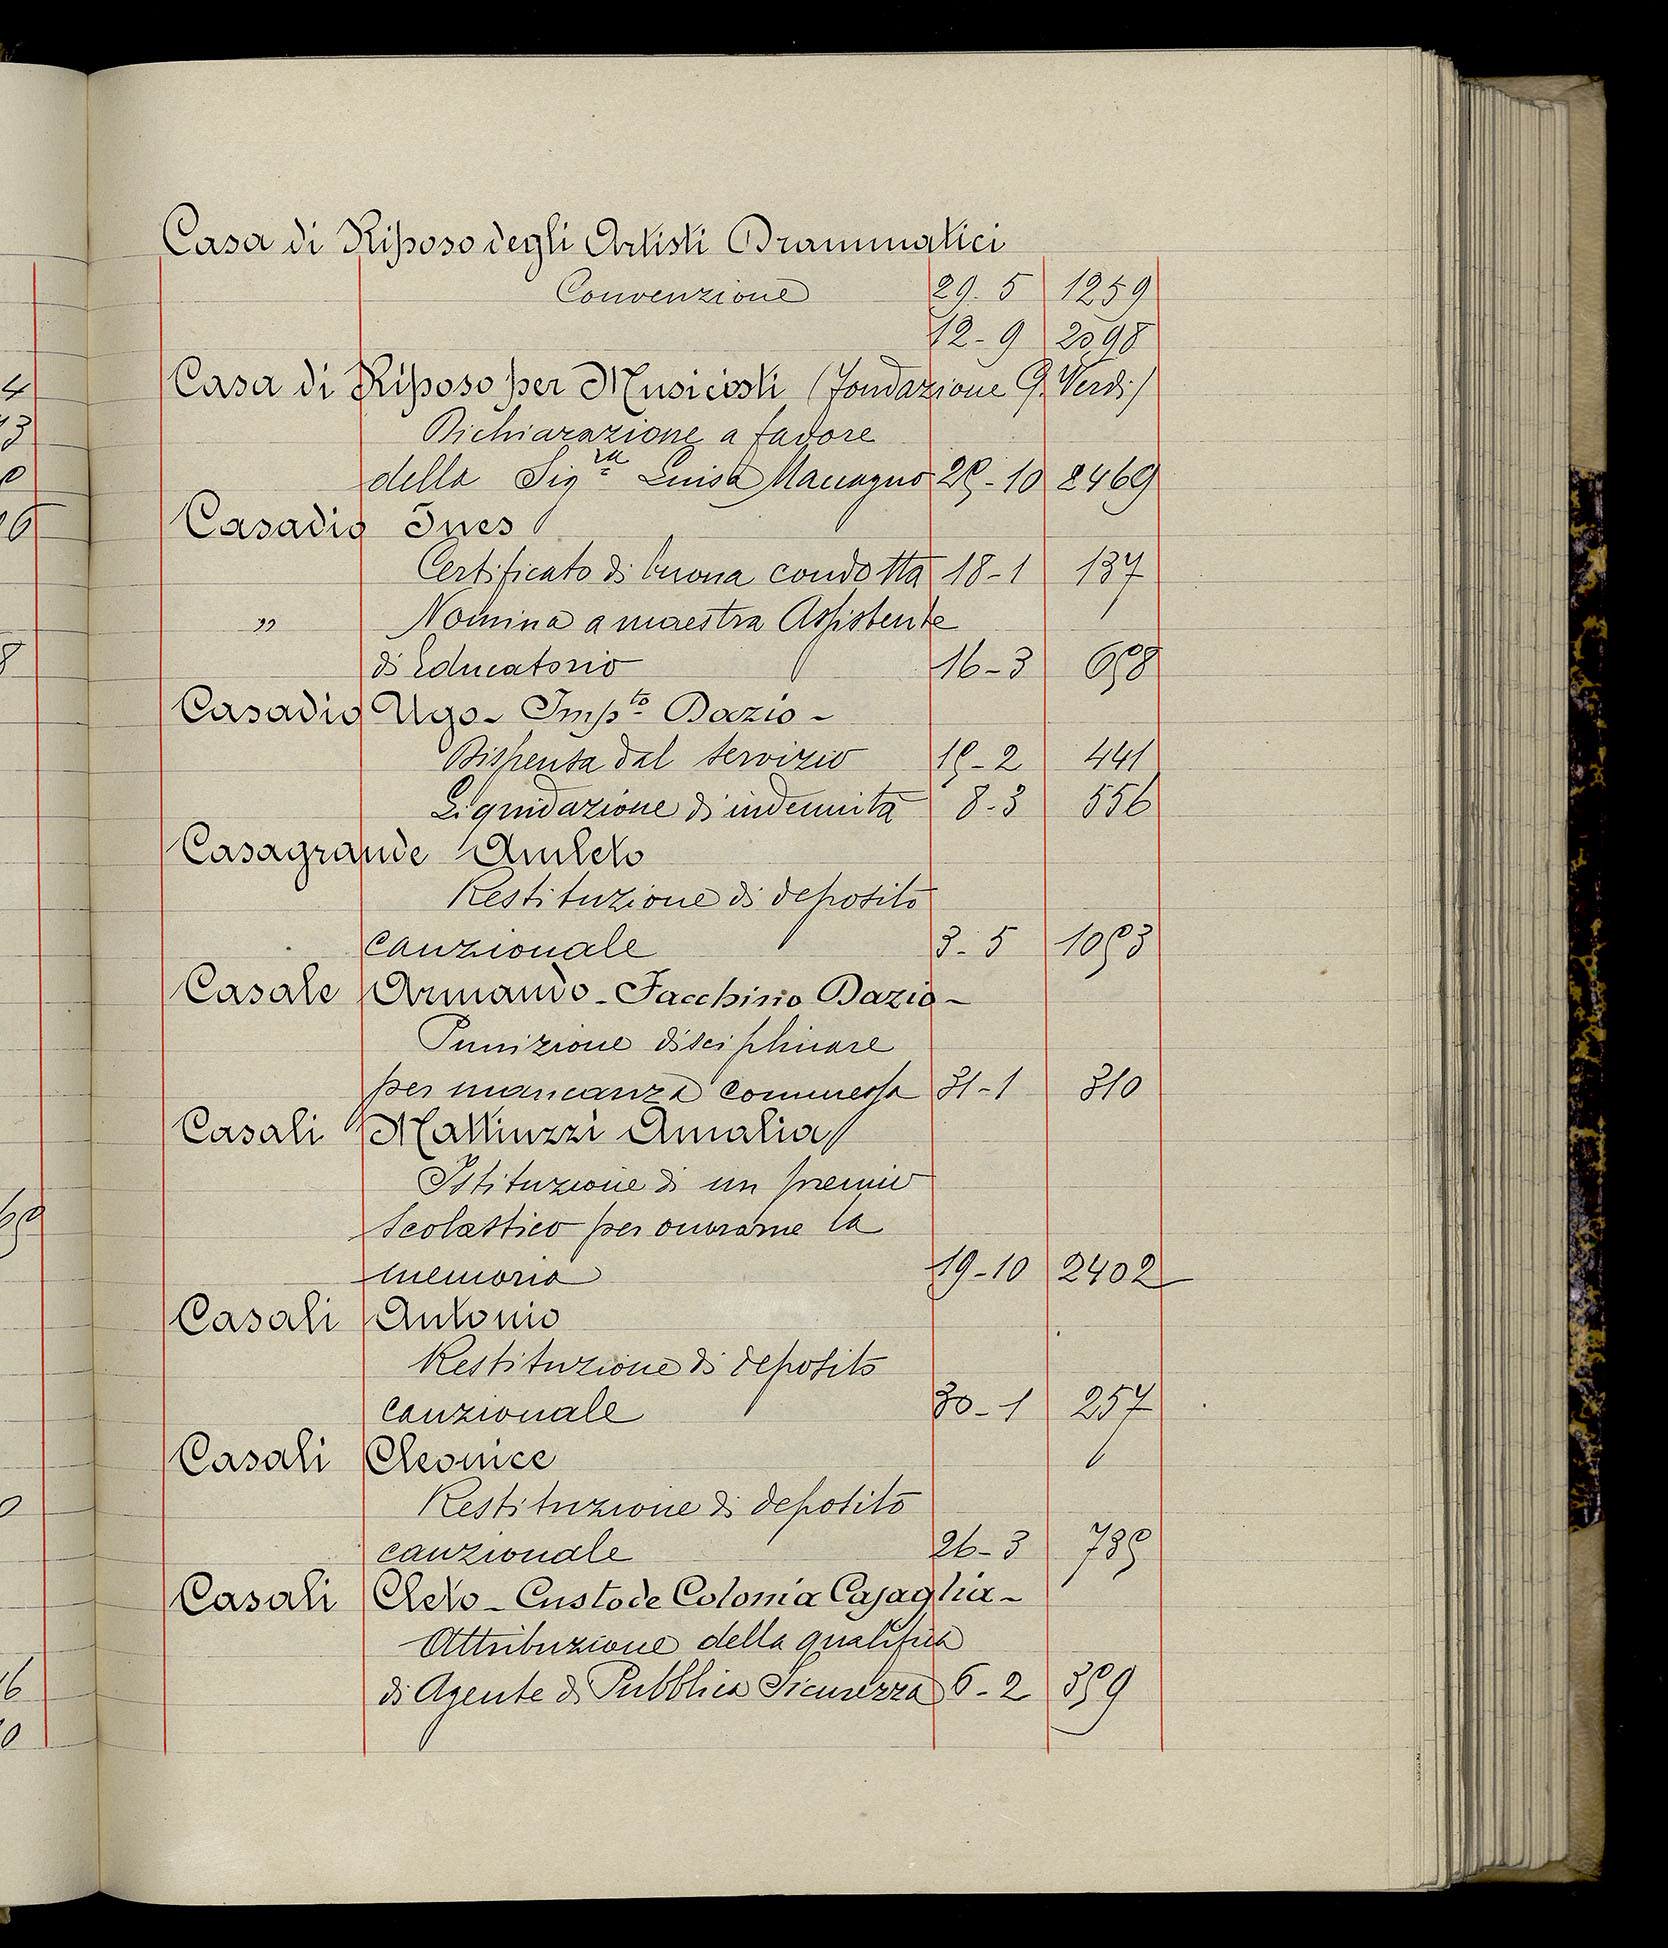 Casa di Riposo degli Artisti Drammatici
Convenzione 29-5 1259
12-9 2098
Casa di Riposo per Musicisti (fondazione G. Verdi)
Dichiarazione a favore
della Sig.ra Luisa Maccagno 25-10 2469
Casadio Ines
Certificato di buona condotta 18-1 137
" Nomina a maestra Assistente
di Educatorio 16-3 658
Casadio Ugo - Imp.to Dazio -
Dispensa dal servizio 15-2 441
Liquidazione di indennità 8-3 556
Casagrande Amleto
Restituzione di deposito
cauzionale 3-5 1053
Casale Armando - Facchino Dazio -
Punizione disciplinare
per mancanza commessa 31-1 310
Casali Mattiuzzi Amalia
Istituzione di un premio
scolastico per onorarne la
memoria 19-10 2402
Casali Antonio
Restituzione di deposito
cauzionale 30-1 257
Casali Cleonice
Restituzione di deposito
cauzionale 26-3 785
Casali Cleto - Custode Colonia Casaglia -
Attribuzione della qualifica
di Agente di Pubblica Sicurezza 6-2 359